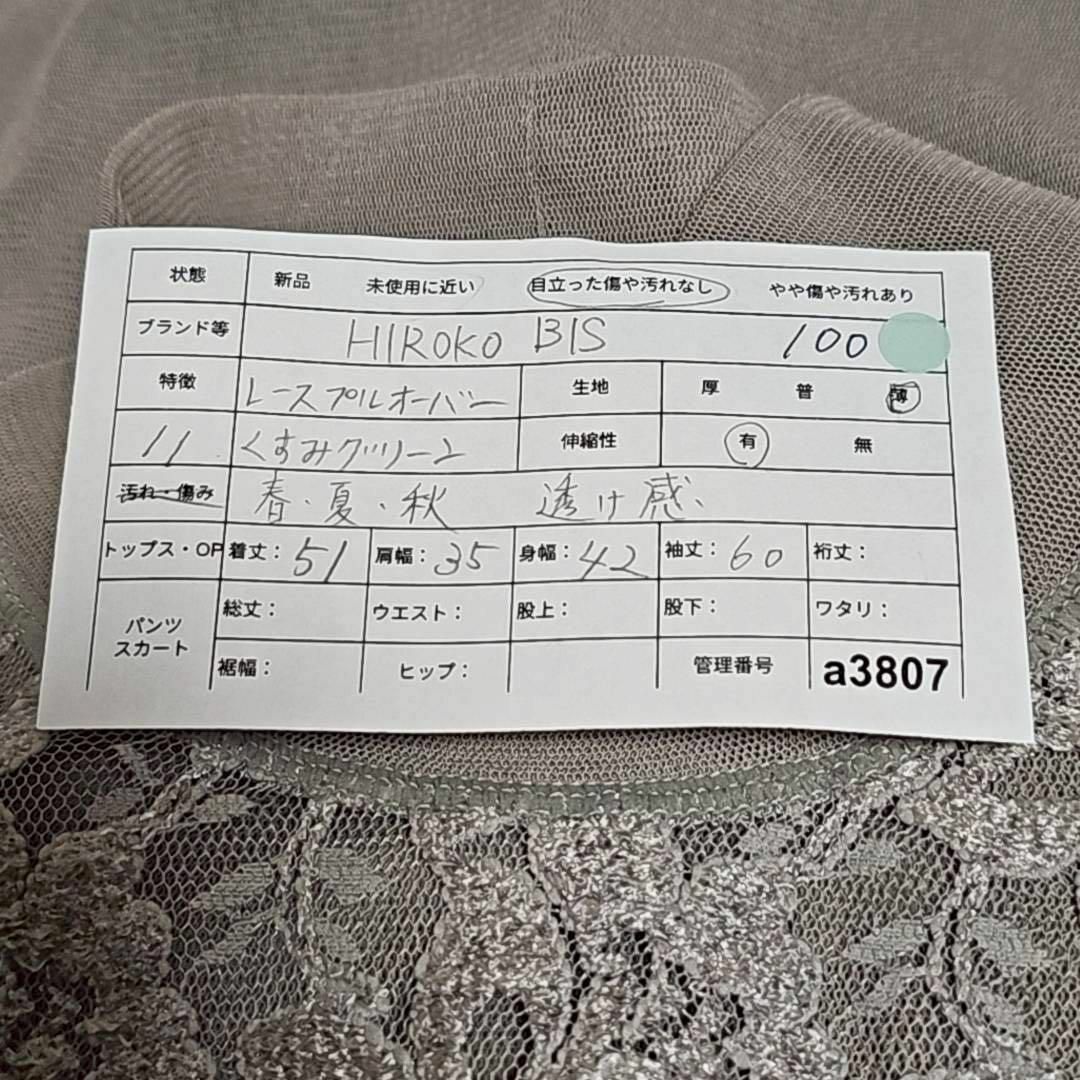 状態 新品 未使用に近い 目立った傷や汚れなし やや傷や汚れあり
ブランド等 HIROKO BIS 100
特徴 レースプルオーバー 生地 厚 普 薄
11 くすみグリーン 伸縮性 有 無
汚れ・傷み 春・夏・秋 透け感、
トップス・OP 着丈：51 肩幅：35 身幅：42 袖丈：60 裄丈：
パンツ スカート 総丈： ウエスト： 股上： 股下： ワタリ：
裾幅： ヒップ： 管理番号 a3807